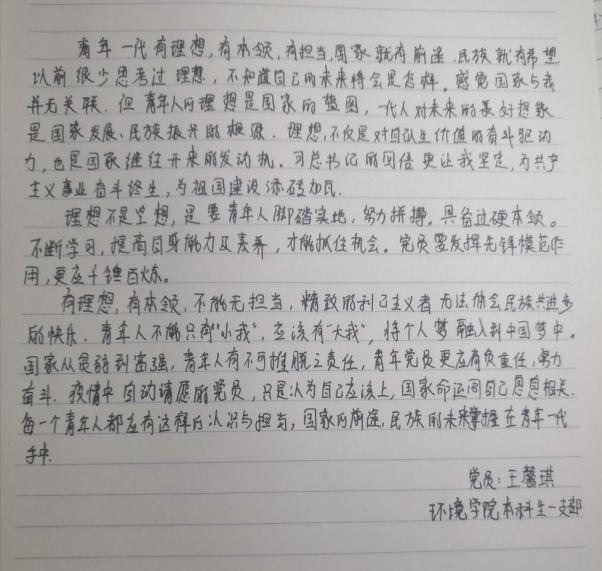 青年一代有理想，有本领，有担当，国家就有前途，民族就有希望
以前很少思考过理想，不知道自己的未来将会是怎样。感觉国家与我
并无关联。但青年人的理想是国家的蓝图，一代人对未来的美好想象
是国家发展、民族振兴的根源。理想，不仅是对自身人生价值的奋斗驱动
力，也是国家继往开来的发动机。习总书记的回信更让我坚定，为共产
主义事业奋斗终生，为祖国建设添砖加瓦。
理想不是空想，是要青年人脚踏实地，努力拼搏，具备过硬本领。
不断学习，提高自身能力及素养，才能抓住机会。党员要发挥先锋模范作
用，更应千锤百炼。
有理想，有本领，不能无担当，精致的利己主义者无法体会民族共进步
的快乐．青年人不能只有“小我”，应该有“大我”，将个人梦融入到中国梦中。
国家从贫弱到富强，青年人有不可推脱之责任，青年党员更应有负重任，努力
奋斗．疫情中自动请愿的党员，只是认为自己应该上，国家命运间自己息息相关．
每一个青年人都应有这样的认识与担当，国家的前途，民族的未来掌握在青年一代
手中．
党员：王馨琪
环境学院本科生一支部